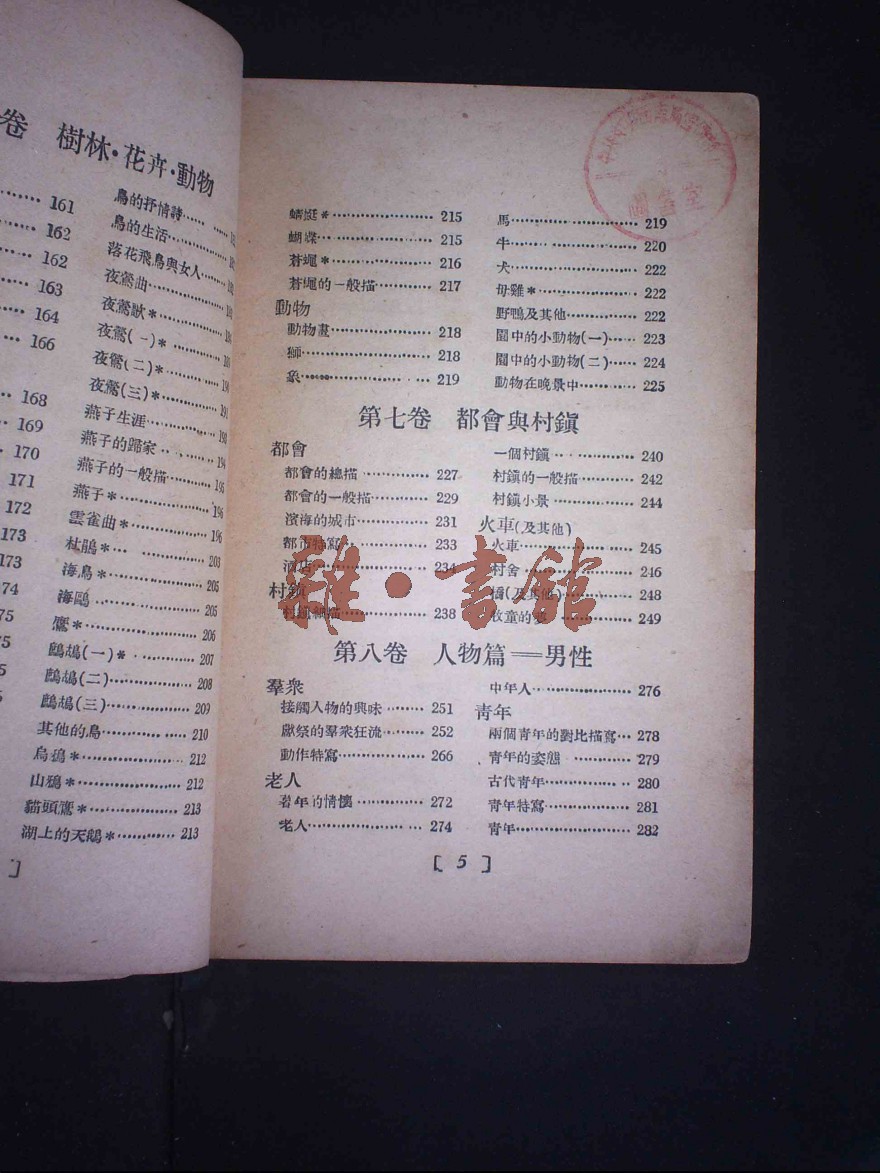 卷 樹林·花卉·動物
161
162
162
163
164
166
168
169
170
171
172
173
173
74
75
75
75
鳥的抒情詩……
鳥的生活……
落花飛鳥與女人……
夜鶯曲……
夜鶯獻*……
夜鶯(一)*……
夜鶯(二)*……190
夜鶯(三)*……191
燕子生涯……193
燕子的歸家……194
燕子的一般描……195
燕子*……196
雲雀曲*……196
杜鵑*……203
海鳥*……205
海鷗……205
鷹*……206
鷓鴣(一)*……207
鷓鴣(二)……208
鷓鴣(三)……209
其他的鳥……210
烏鴉*……212
山鴉*……212
貓頭鷹*……213
湖上的天鵝*……213
蜻蜓*……215
蝴蝶……215
蒼蠅*……216
蒼蠅的一般描……217
動物
動物畫……218
獅……218
象……219
馬……219
牛……220
犬……222
母雞*……222
野鴨及其他……222
園中的小動物(一)……223
園中的小動物(二)……224
動物在晚景中……225
第七卷 都會與村鎭
都會
都會的總描……227
都會的一般描……229
濱海的城市……231
都市特寫……233
酒店……234
村鎭
村鎭總描……238
一個村鎭……240
村鎭的一般描……242
村鎭小景……244
火車(及其他)
火車……245
村舍……246
橋(及其他)……248
牧童的家……249
第八卷 人物篇——男性
羣衆
接觸人物的興味……251
獻祭的羣衆狂流……252
動作特寫……266
老人
耆年的情懷……272
老人……274
中年人……276
靑年
兩個青年的對比描寫…278
青年的姿態……279
古代青年……280
青年特寫……281
青年……282
[ 5 ]
圖書室
雜·書館